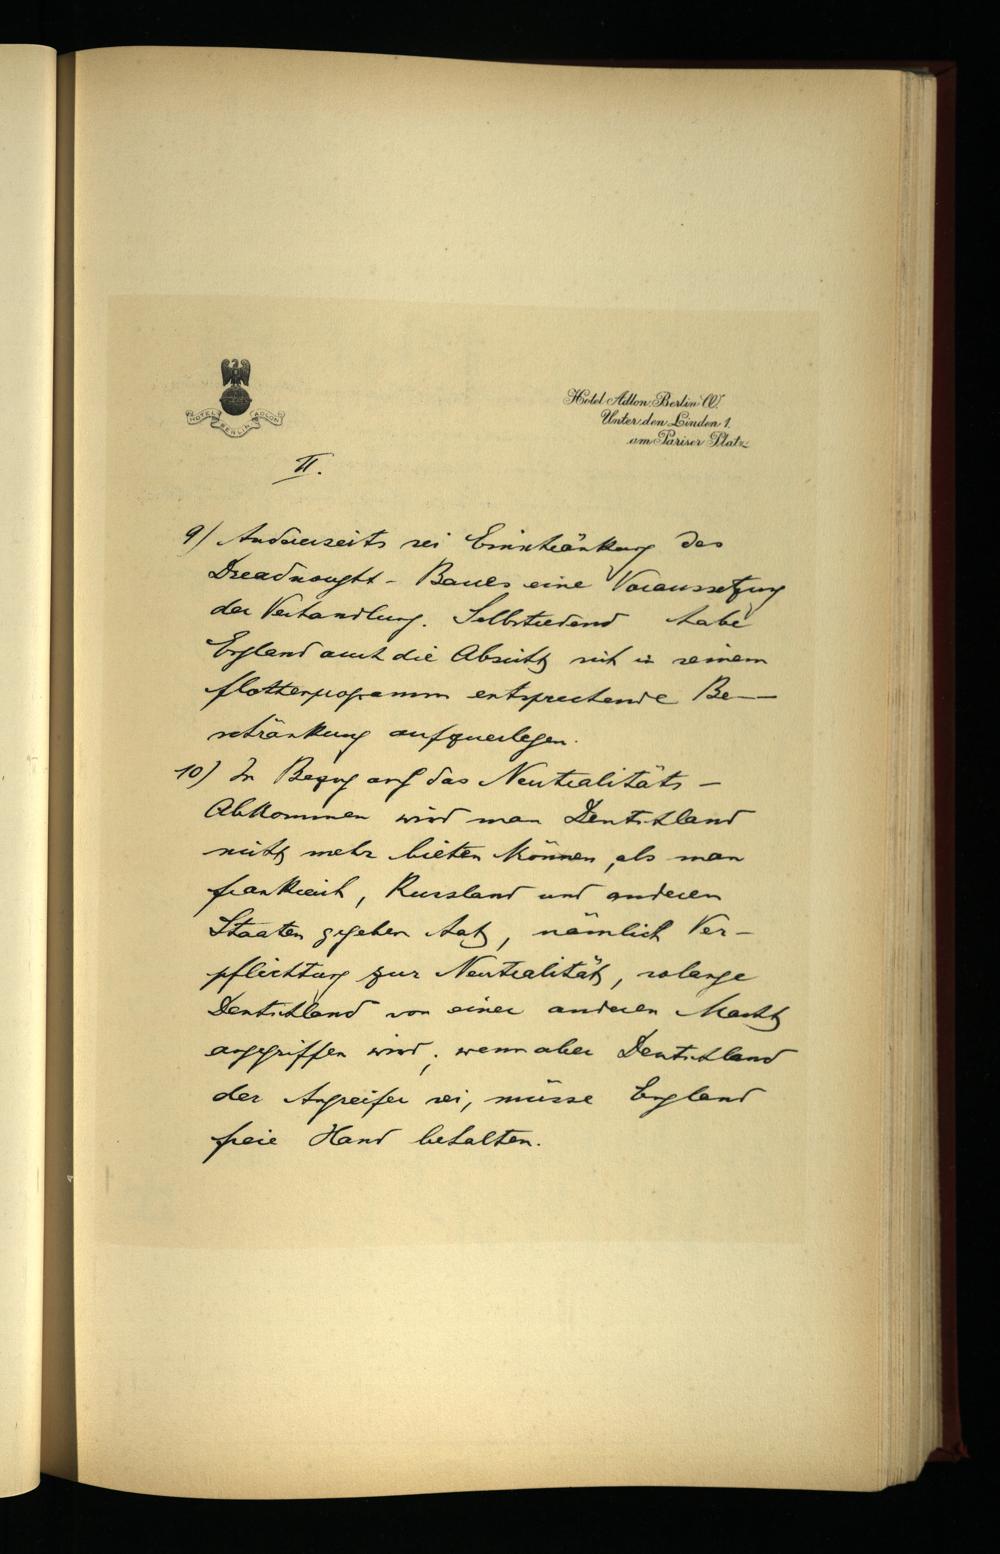 HOTEL ADLON
BERLIN
Hotel Adlon. Berlin W.
Unter den Linden 1.
am Pariser Platz
II.
9) Andererseits sei Einschränkung des
Dreadnought - Baues eine Voraussetzung
der Verhandlung. Selbstredend habe
England auch die Absicht sich in seinem
Flottenprogramm entsprechende Be-
schränkung aufzuerlegen.
10) In Bezug auf das Neutralitäts-
Abkommen wird man Deutschland
nicht mehr bieten können, als man
Frankreich, Russland und anderen
Staaten gegeben hat, nämlich Ver-
pflichtung zur Neutralität, solange
Deutschland von einer anderen Macht
angegriffen wird; wenn aber Deutschland
der Angreifer sei, müsse England
freie Hand behalten.